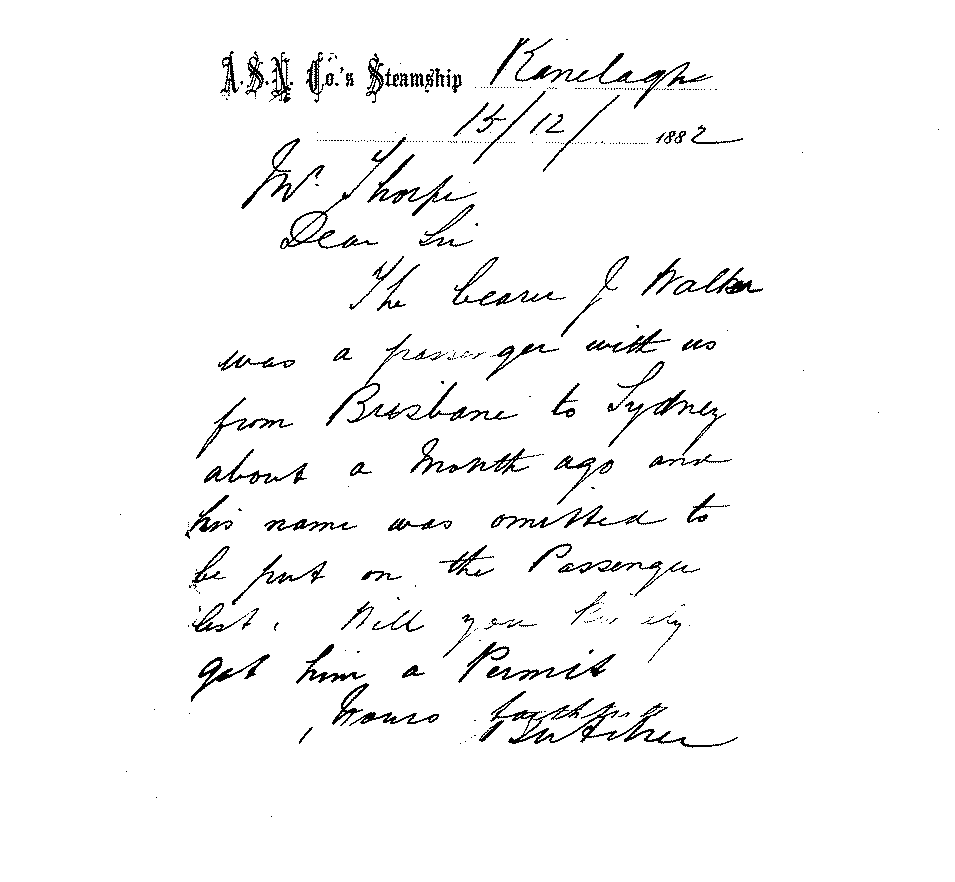 A.S.N. Co.'s Steamship Ranelagh
15/12/1882
Mr. Thorpe
Dear Sir
The bearer J Walker
was a passenger with us
from Brisbane to Sydney
about a Month ago and
his name was omitted to
be put on the Passenger
list. Will you kindly
get him a Permit
Yours faithfully
Butcher